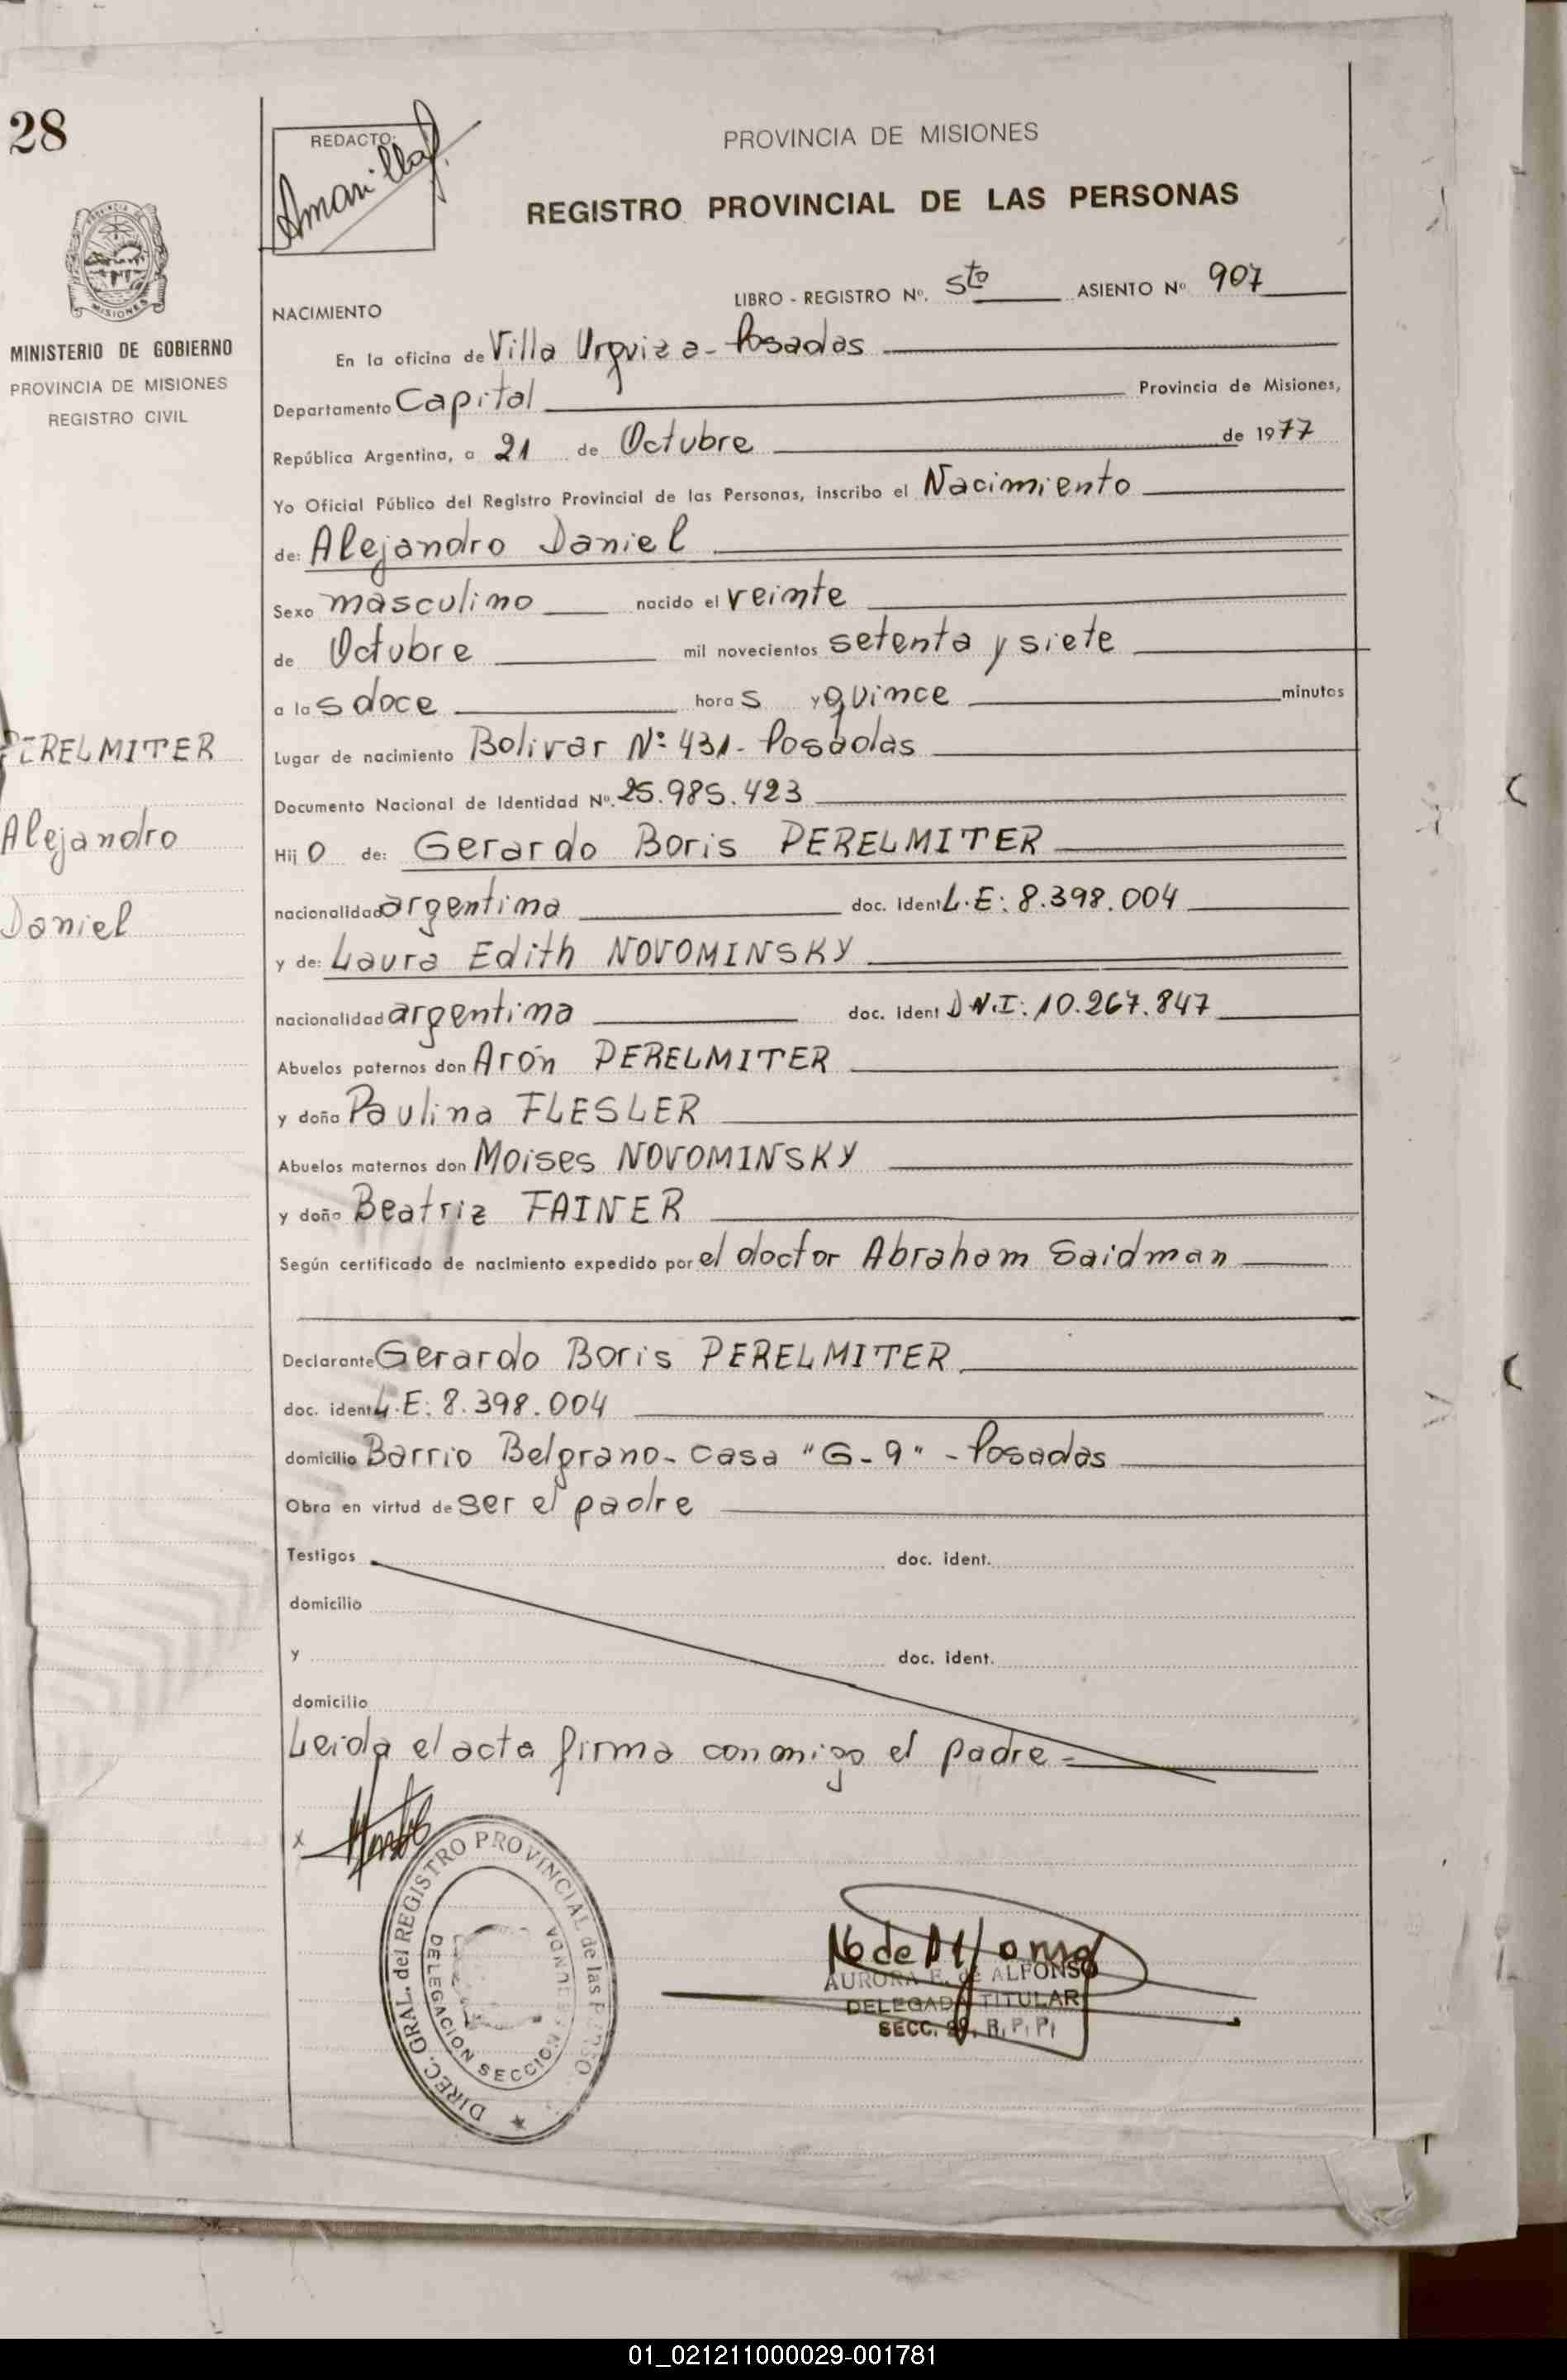 28
REDACTO:
Amarilla
PROVINCIA DE MISIONES
REGISTRO PROVINCIAL DE LAS PERSONAS
MISIONES
MINISTERIO DE GOBIERNO
PROVINCIA DE MISIONES
REGISTRO CIVIL
LIBRO - REGISTRO Nº. 5to ASIENTO Nº 907
NACIMIENTO
En la oficina de Villa Urquiza - Posadas
Departamento Capital Provincia de Misiones,
República Argentina, a 21 de Octubre de 1977
Yo Oficial Público del Registro Provincial de las Personas, inscribo el Nacimiento
de: Alejandro Daniel
Sexo masculino nacido el veinte
de Octubre mil novecientos setenta y siete
a las doce horas y quince minutos
PERELMITER
Alejandro
Daniel
Lugar de nacimiento Bolivar Nº 431 - Posadas
Documento Nacional de Identidad Nº. 25.985.423
Hijo de: Gerardo Boris PERELMITER
nacionalidad argentina doc. ident L.E: 8.398.004
y de: Laura Edith NOVOMINSKY
nacionalidad argentina doc. ident D.N.I: 10.267.847
Abuelos paternos don Arón PERELMITER
y doña Paulina FLESLER
Abuelos maternos don Moises NOVOMINSKY
y doña Beatriz FAINER
Según certificado de nacimiento expedido por el doctor Abraham Saidman
Declarante Gerardo Boris PERELMITER
doc. ident L.E: 8.398.004
domicilio Barrio Belgrano - casa "G-9" - Posadas
Obra en virtud de ser el padre
Testigos doc. ident.
domicilio
y doc. ident.
domicilio
Leida el acta firma conmigo el padre -
x
DIREC. GRAL. del REGISTRO PROVINCIAL de las PERSO
DELEGACION SECCION
AURORA E. de ALFONSO
DELEGADA TITULAR
SECC. R.P.P.
01_021211000029-001781